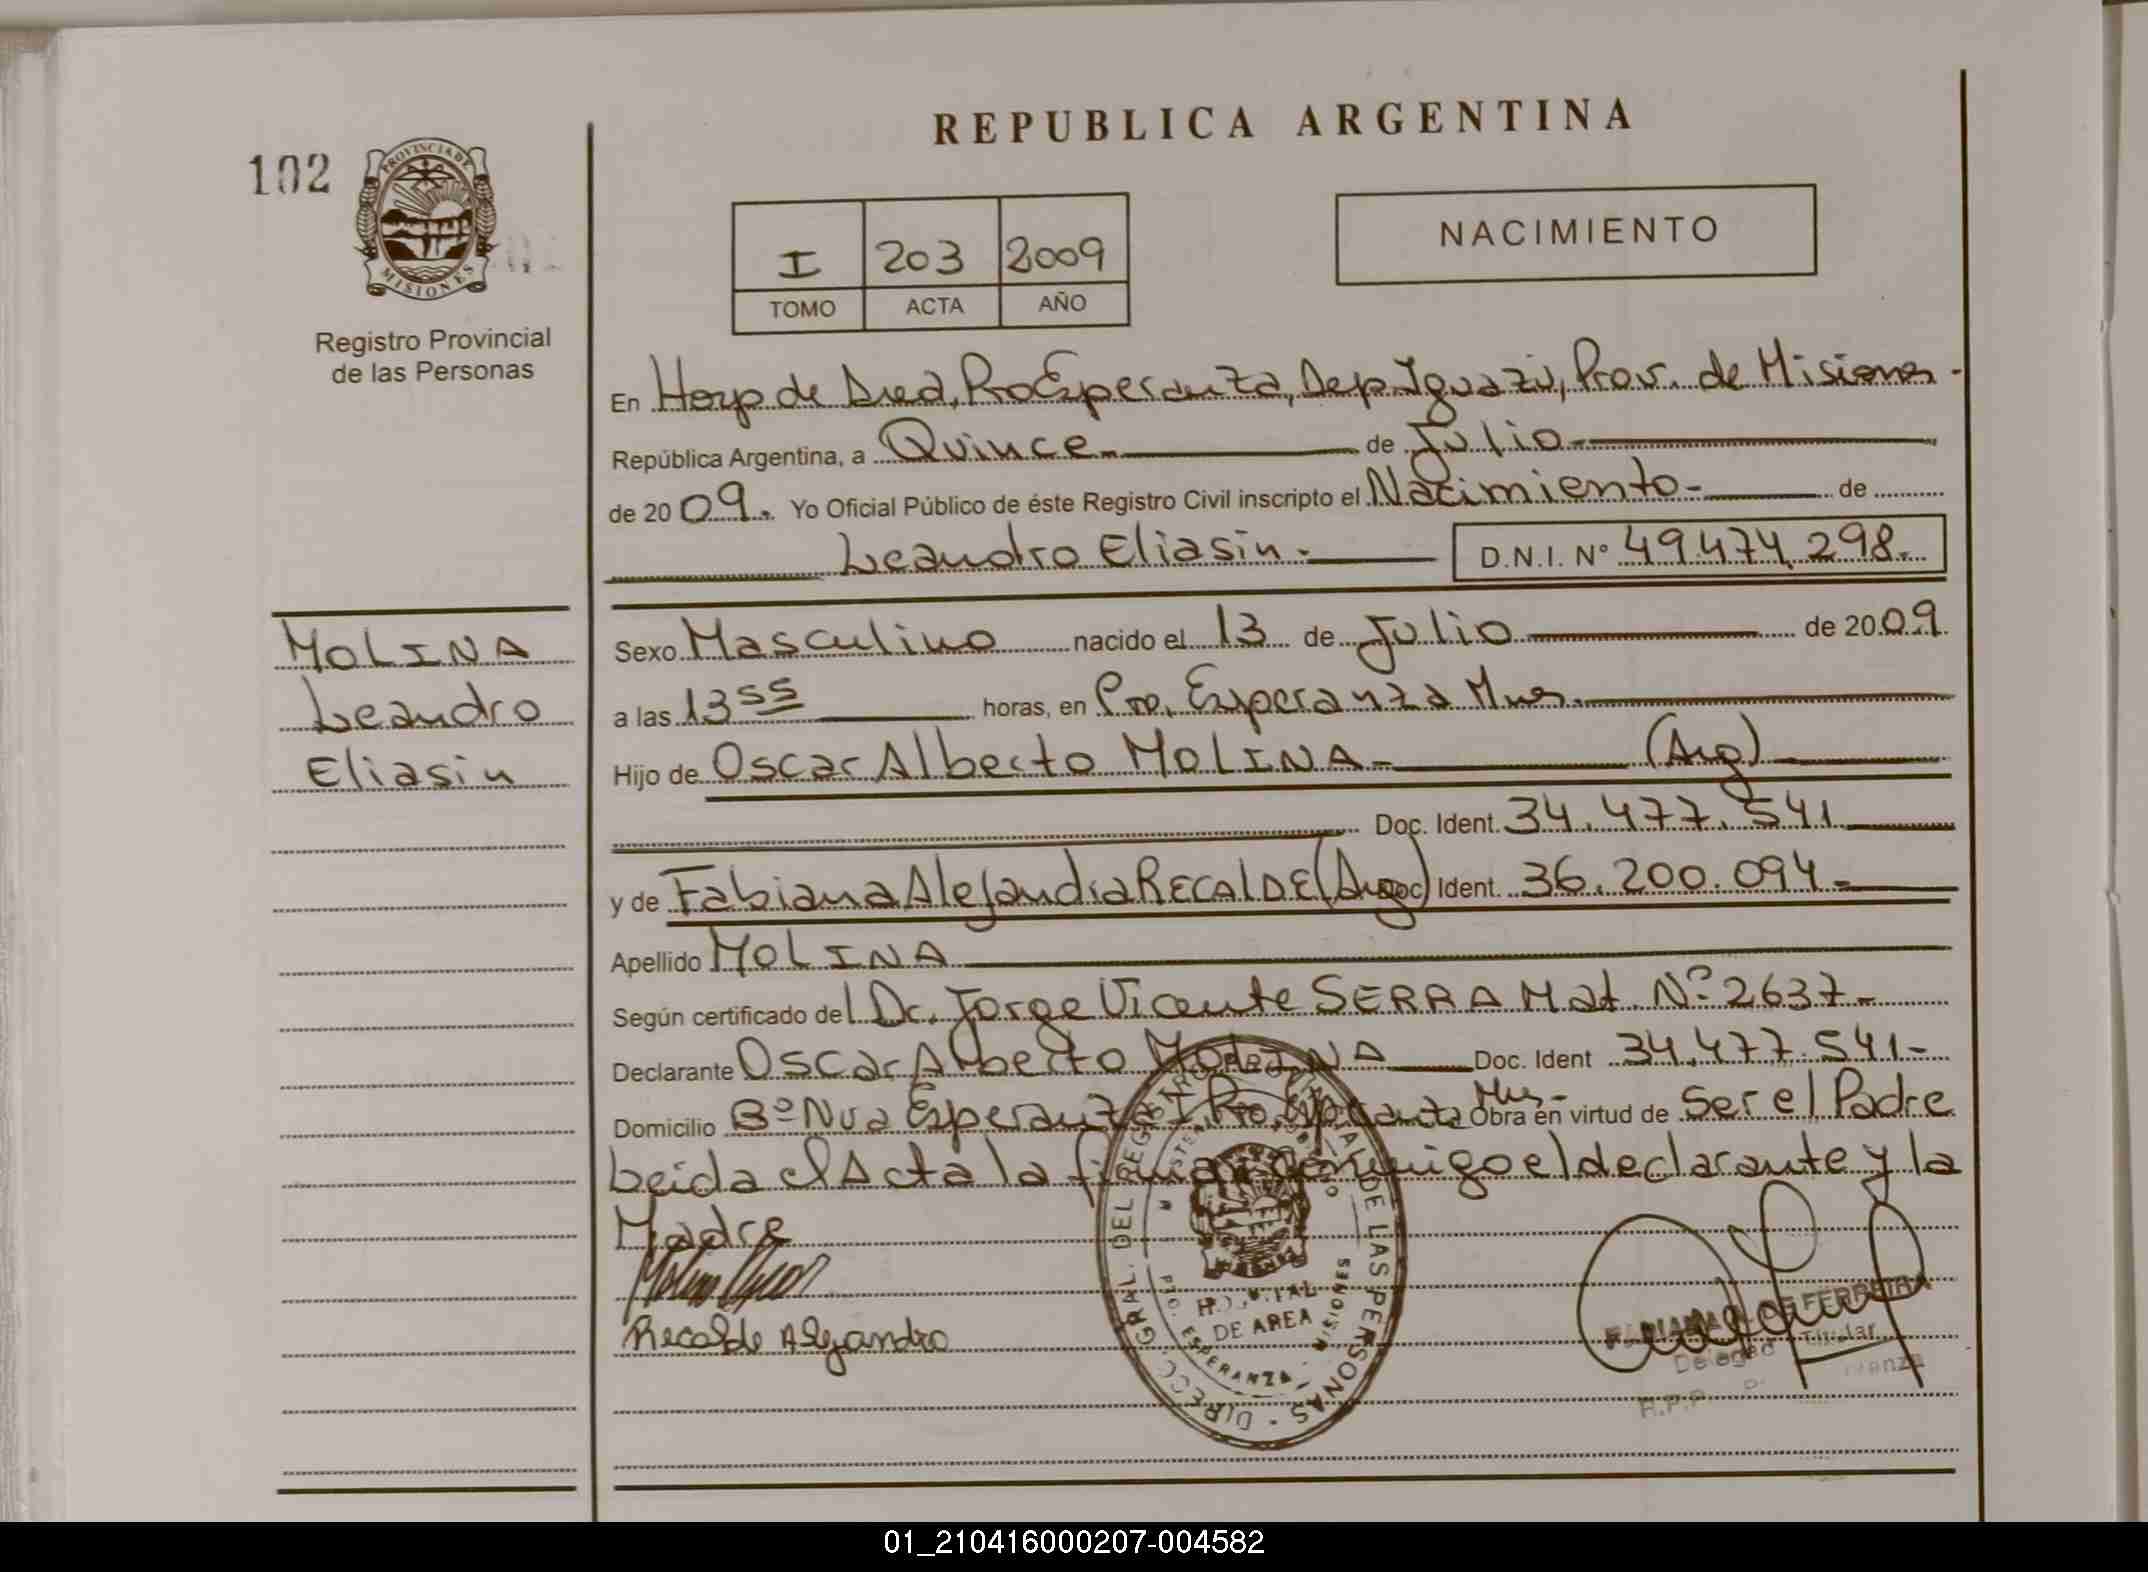 REPUBLICA ARGENTINA
102
PROVINCIA DE
MISIONES
Registro Provincial
de las Personas
I 203 2009
TOMO ACTA AÑO
NACIMIENTO
En Hosp de Area, Pto Esperanza, Dep. Iguazú, Prov. de Misiones -
República Argentina, a Quince - de Julio -
de 2009. Yo Oficial Público de éste Registro Civil inscripto el Nacimiento - de
Leandro Eliasin - D.N.I. Nº 49.474.298.
MOLINA
Leandro
Eliasin
Sexo Masculino nacido el 13 de Julio de 2009.
a las 13 55 horas, en Pto. Esperanza Mnes.
Hijo de Oscar Alberto MOLINA - (Arg)
Doc. Ident. 34.477.541
y de Fabiana Alejandra RECALDE (Arg) Doc Ident. 36.200.094 -
Apellido MOLINA
Según certificado del Dr. Jorge Vicente SERRA Mat. Nº 2637 -
Declarante Oscar Alberto MOLINA Doc. Ident 34.477.541 -
Domicilio Bº Nva Esperanza I, Pto. Esperanza Mnes - Obra en virtud de Ser el Padre
Leida el Acta la firman conmigo el declarante y la
Madre
Molina Oscar
Recalde Alejandra
DIRECC. GRAL. DEL REGISTRO PROVINCIAL DE LAS PERSONAS -
HOSPITAL
DE AREA
PTO. ESPERANZA - MISIONES
DE FERREIRA
Titular
R.P.P.
01_210416000207-004582